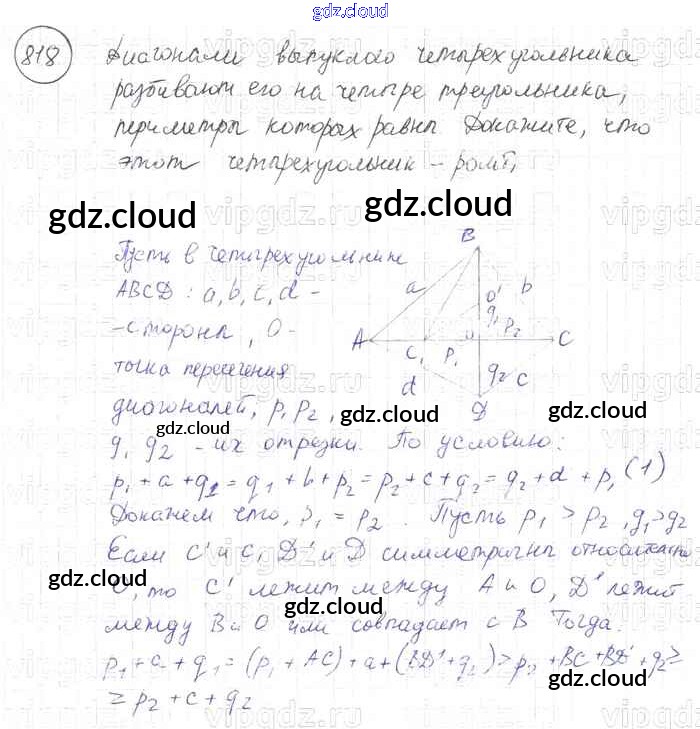 gdz.cloud
818 Диагонали выпуклого четырехугольника
разбивают его на четыре треугольника,
периметры которых равны. Докажите, что
этот четырехугольник – ромб,
gdz.cloud gdz.cloud
Пусть в четырехугольнике
ABCD : a, b, c, d –
– стороны, O –
точка пересечения
диагоналей, p, p2,
q, q2 – их отрезки. По условию:
B
a b
O'
q1
A P2 C
C1 P1
d q2 c
D
gdz.cloud gdz.cloud gdz.cloud
p1 + a + q1 = q1 + b + p2 = p2 + c + q2 = q2 + d + p1 (1)
Докажем что, p1 = p2. Пусть p1 > p2, q1 > q2
Если C' и C, D' и D симметричны относительно
O, то C' лежит между A и O, D' лежит
gdz.cloud gdz.cloud gdz.cloud
между B и O или совпадает с B Тогда:
p1 + a + q1 = (p1 + AC) + a + (BD' + q2) > p2 + BC + BD' + q2 ≥
≥ p2 + c + q2
gdz.cloud gdz.cloud